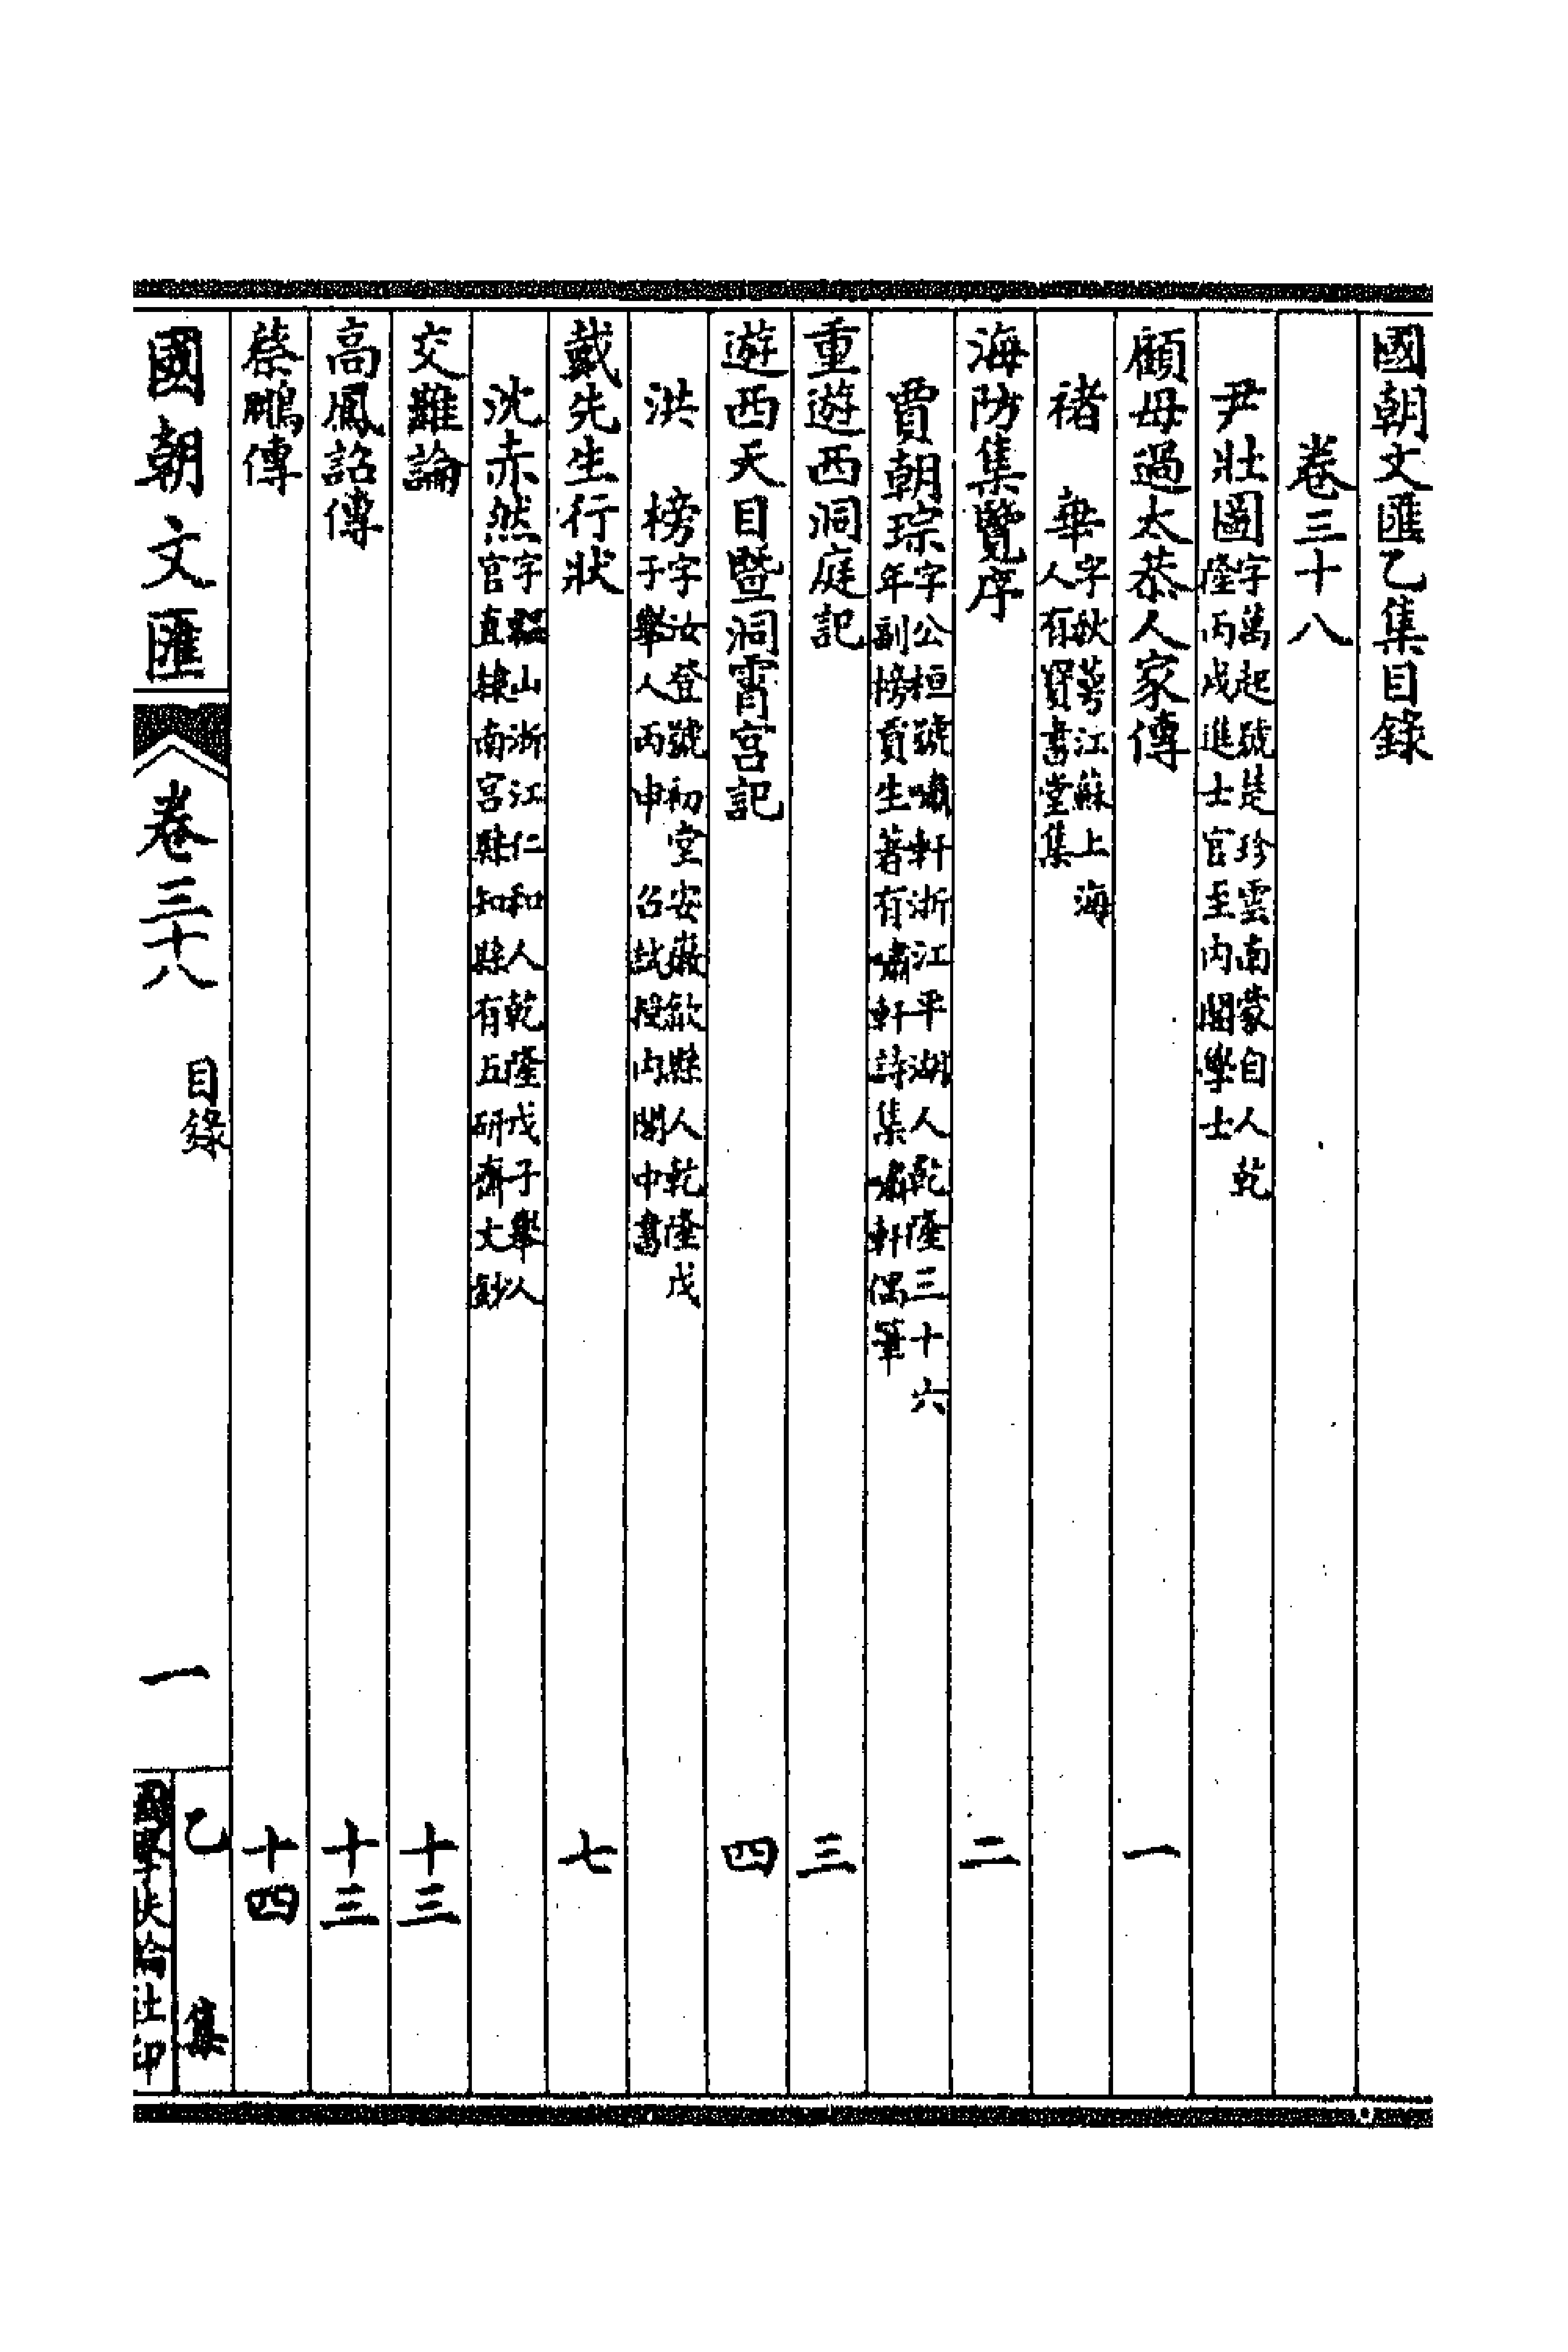 國朝文匯乙集目錄
卷三十八
尹壯圖字萬起號楚珍雲南蒙自人乾
隆丙戌進士官至內閣學士
顧母過太恭人家傳 一
褚 華字秋萼江蘇上海
人有寶書堂集
海防集覽序 二
賈朝琮字公桓號嘯軒浙江平湖人乾隆三十六
年副榜貢生著有嘯軒詩集嘯軒偶筆
重遊西洞庭記 三
遊西天目暨洞霄宮記 四
洪 榜字汝登號初堂安徽歙縣人乾隆戊
子舉人丙申 召試授內閣中書
戴先生行狀 七
沈赤然字韞山浙江仁和人乾隆戊子舉人
官直隸南宮縣知縣有五研齋文鈔
交難論 十三
高鳳詔傳 十三
蔡鵬傳 十四
國朝文匯 卷三十八 目錄 一 乙集
國學扶輪社印